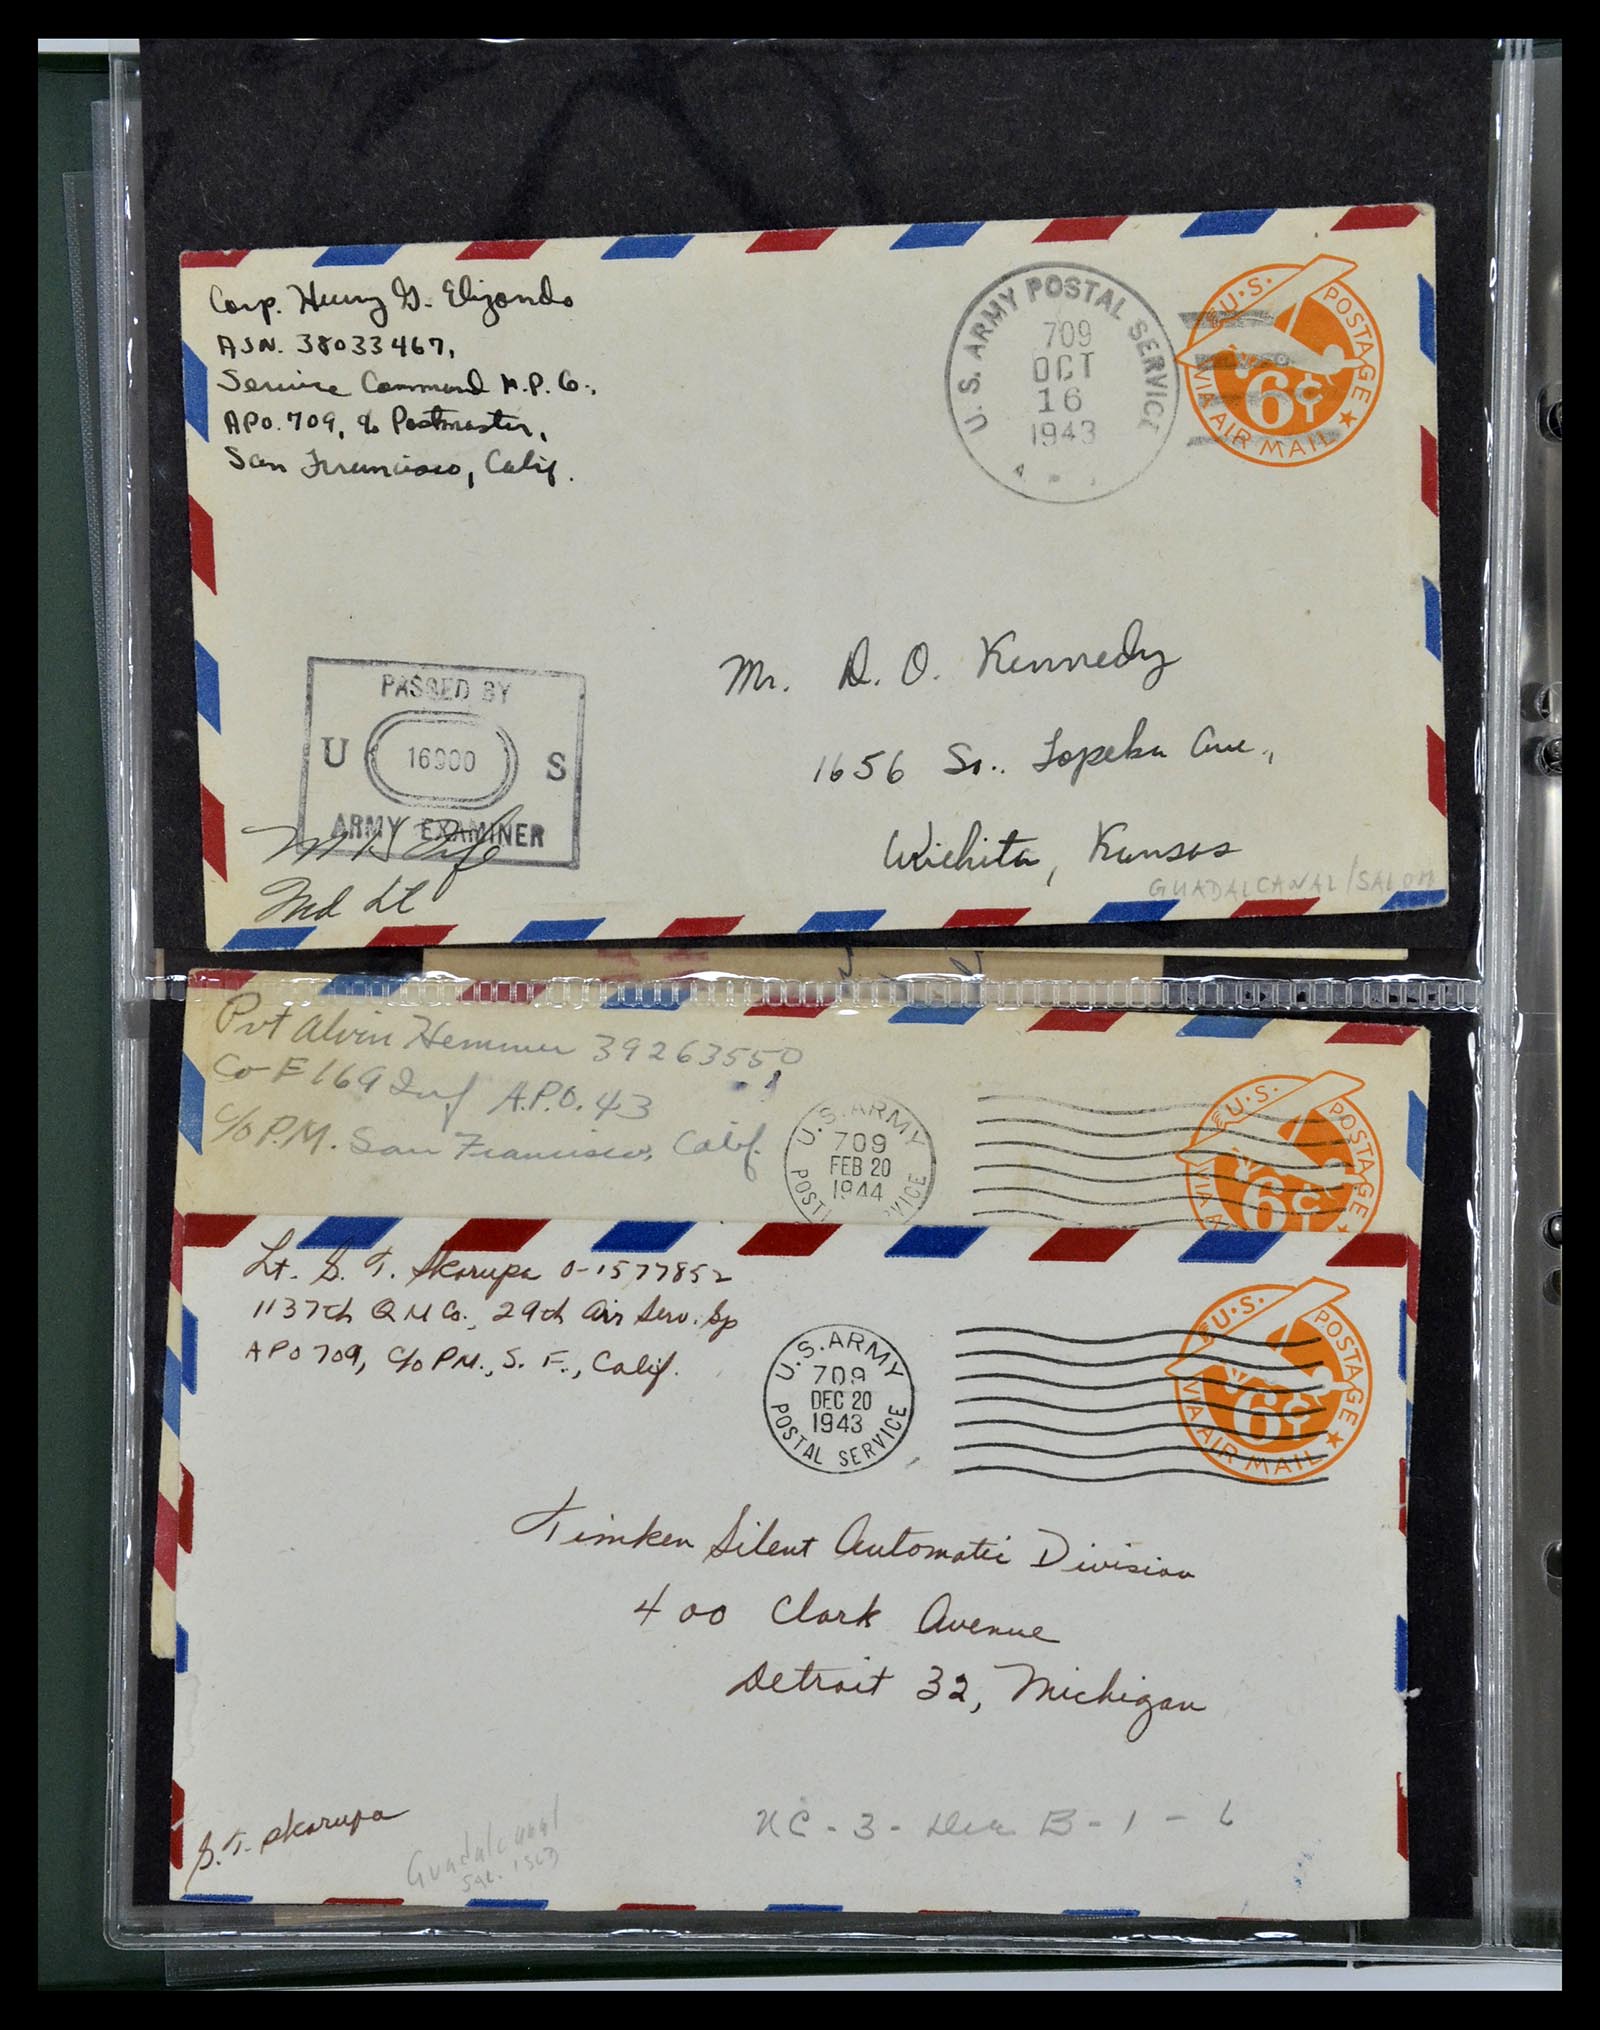 Corp. Henry G. Elizondo
ASN. 38033467,
Service Command M.P. Co.,
APO. 709, c/o Postmaster,
San Francisco, Calif.
U.S. ARMY POSTAL SERVICE
709
OCT
16
1943
U.S. POSTAGE
6¢
VIA AIR MAIL
PASSED BY
U 16900 S
ARMY EXAMINER
2nd Lt
Mr. D. O. Kennedy
1656 So. Topeka Ave.,
Wichita, Kansas
GUADALCANAL/SALOM
Pvt Alvin Hemmer 39263550
Co-F 169 Inf A.P.O. 43
C/o P.M. San Francisco, Calif.
U.S. ARMY
709
FEB 20
1944
POSTAL SERVICE
U.S. POSTAGE
6¢
VIA
Lt. S. T. Skarupa O-1577852
1137th QM Co., 29th Air Serv. Gp
APO 709, C/o PM., S. F., Calif.
U.S. ARMY
709
DEC 20
1943
POSTAL SERVICE
U.S. POSTAGE
6¢
VIA AIR MAIL
Timken Silent Automatic Division
400 Clark Avenue
Detroit 32, Michigan
S. T. Skarupa
Guadalcanal
NC - 3 - B - 1 - 6